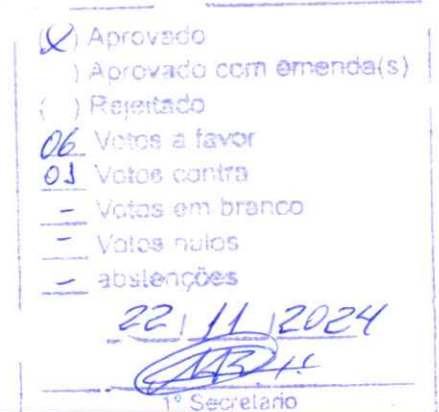 (X) Aprovado
( ) Aprovado com emenda(s)
( ) Rejeitado
06 Votos a favor
01 Votos contra
- Votos em branco
- Votos nulos
- abstenções
22/11/2024
1º Secretário